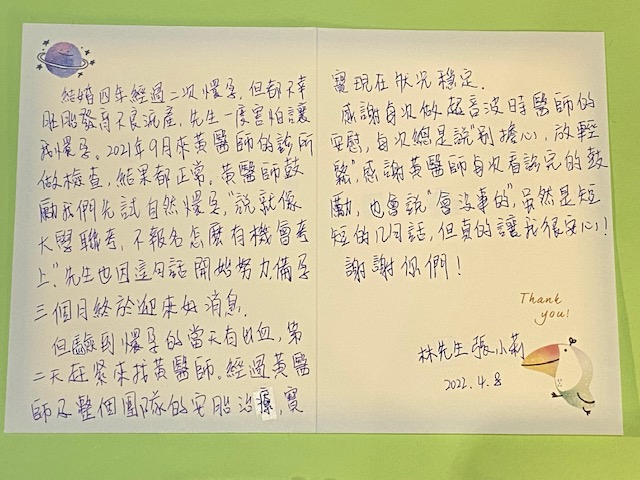 結婚四年經過二次懷孕，但都不幸
胚胎發育不良流產，先生一度害怕讓
我懷孕。2021年9月來黃醫師的診所
做檢查，結果都正常，黃醫師鼓
勵我們先試自然懷孕，"說就像
大學聯考，不報名怎麼有機會考
上"先生也因這句話開始努力備孕
三個月終於迎來好消息.
但驗到懷孕的當天有出血，第
二天赶緊來找黃醫師。經過黃醫
師及整個團隊的安胎治療，寶
寶現在狀況穩定.
感謝每次做超音波時醫師的
安慰，每次總是說"別擔心，放輕
鬆"，感謝黃醫師每次看診完的鼓
勵，也會說"會沒事的"，虽然是短
短的几句話，但真的讓我很安心！
謝謝你們！
Thank
you!
林先生 張小莉
2022.4.8